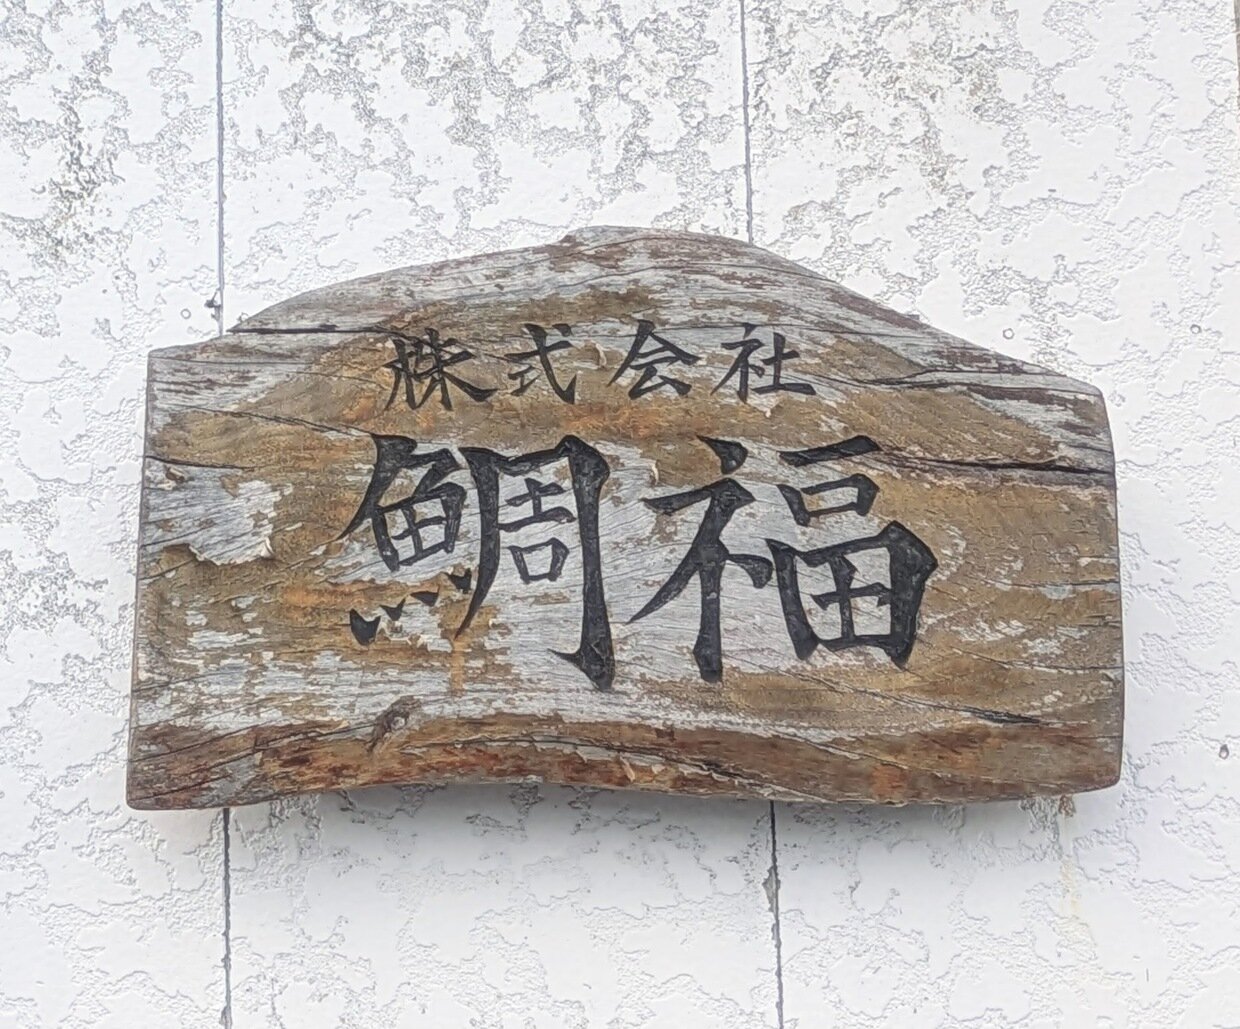 株式会社
鯛福